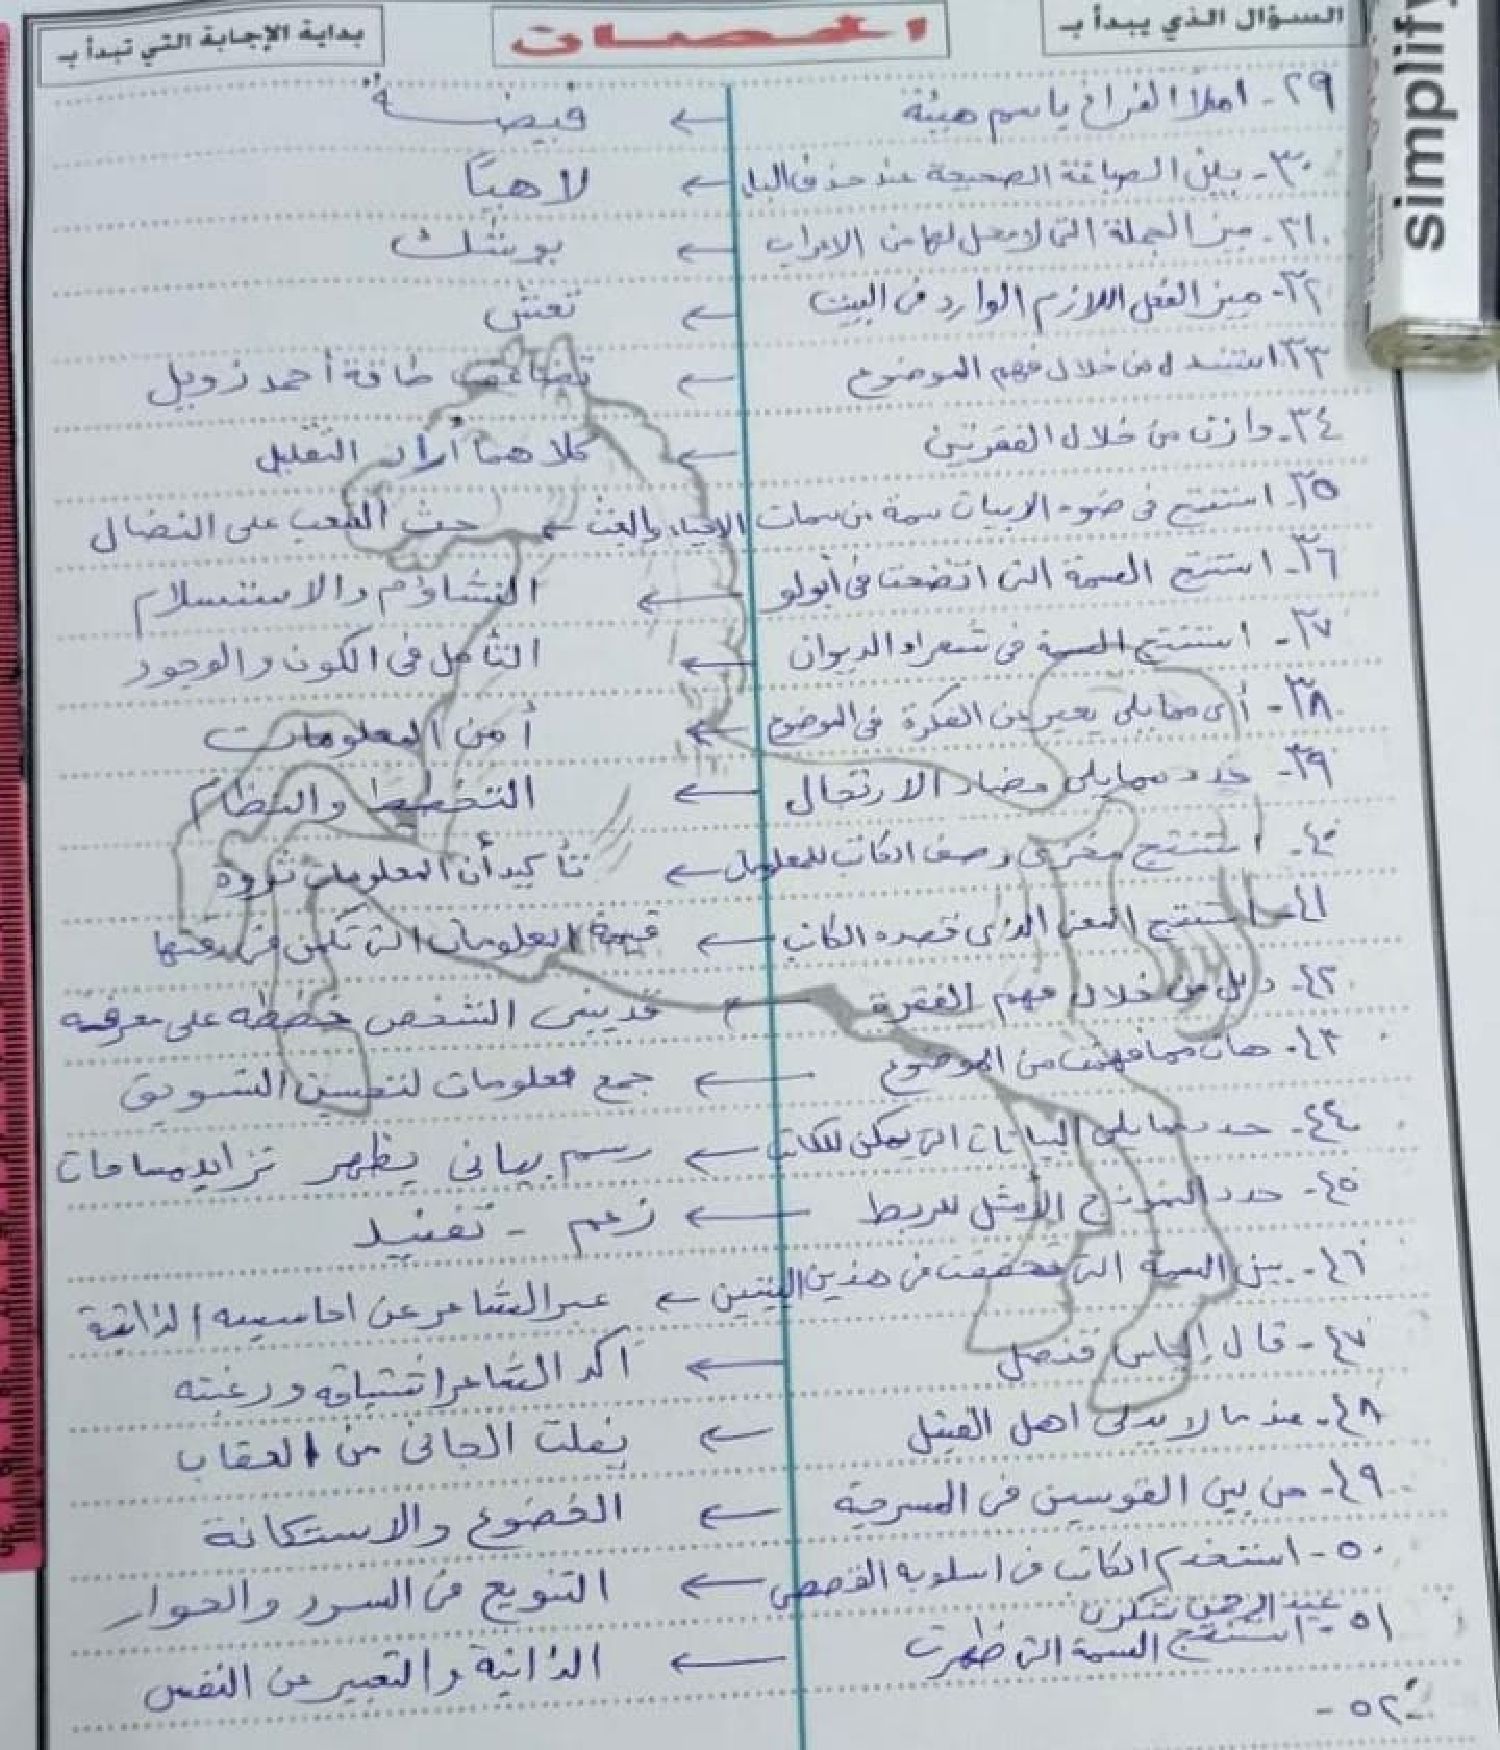 السؤال الذي يبدأ بـ
بداية الإجابة التي تبدأ بـ
simplify
٢٩- املأ الفراغ باسم هيئة ← قبضة
٣٠- بين الصياغة الصحيحة عند حذف الباء ← لاهيًا
٣١- ميز الجملة التي لا محل لها من الاعراب ← يوشك
٣٢- ميز الفعل اللازم الوارد في البيت ←
٣٣- استدل من خلال فهم الموضوع ← طاقة أحمد زويل
٣٤- وازن من خلال الفقرتين ← كلاهما أراد التقليل
٣٥- استنتج في ضوء الابيات سمة من سمات الاحياء والبعث ← حث الشعب على النضال
٣٦- استنتج السمة التي اتضحت في أبولو ← التشاؤم والاستسلام
٣٧- استنتج السمة في شعراء الديوان ← التأمل في الكون والوجود
٣٨- أي مما يلي يعبر عن الفكرة في الموضوع ← أمن المعلومات
٣٩- حدد مما يلي مضاد الارتجال ← التخطيط والنظام
٤٠- استنتج مغزى وصف الكاتب للمعلومات ← تأكيد أن المعلومات ثروة
٤١- استنتج المعنى الذي قصده الكاتب ← قيمة المعلومات التي تكمن في
٤٢- دلل من خلال فهم الفقرة ← قد يبني الشخص خططه على معرفة
٤٣- هات مما فهمت من الموضوع ← جمع معلومات لتحسين التسويق
٤٤- حدد مما يلي البيانات التي يمكن للكاتب ← رسم بياني يظهر تزايد مساحات
٤٥- حدد النموذج الأمثل للربط ← زعم - تفنيد
٤٦- بين السمة التي تحققت في هذين البيتين ← عبر الشاعر عن احاسيسه الذاتية
٤٧- قال إلياس فنصل ← أكد الشاعر اشتياقه ورغبته
٤٨- عندما لا يدلي اهل القتيل ← يفلت الجاني من العقاب
٤٩- من بين القوسين في المسرحية ← الخضوع والاستكانة
٥٠- استخدم الكاتب في اسلوبه القصصي ← التنويع في السرد والحوار
عبد الرحمن شكري
٥١- استنتج السمة التي ظهرت ← الذاتية والتعبير عن النفس
٥٢-